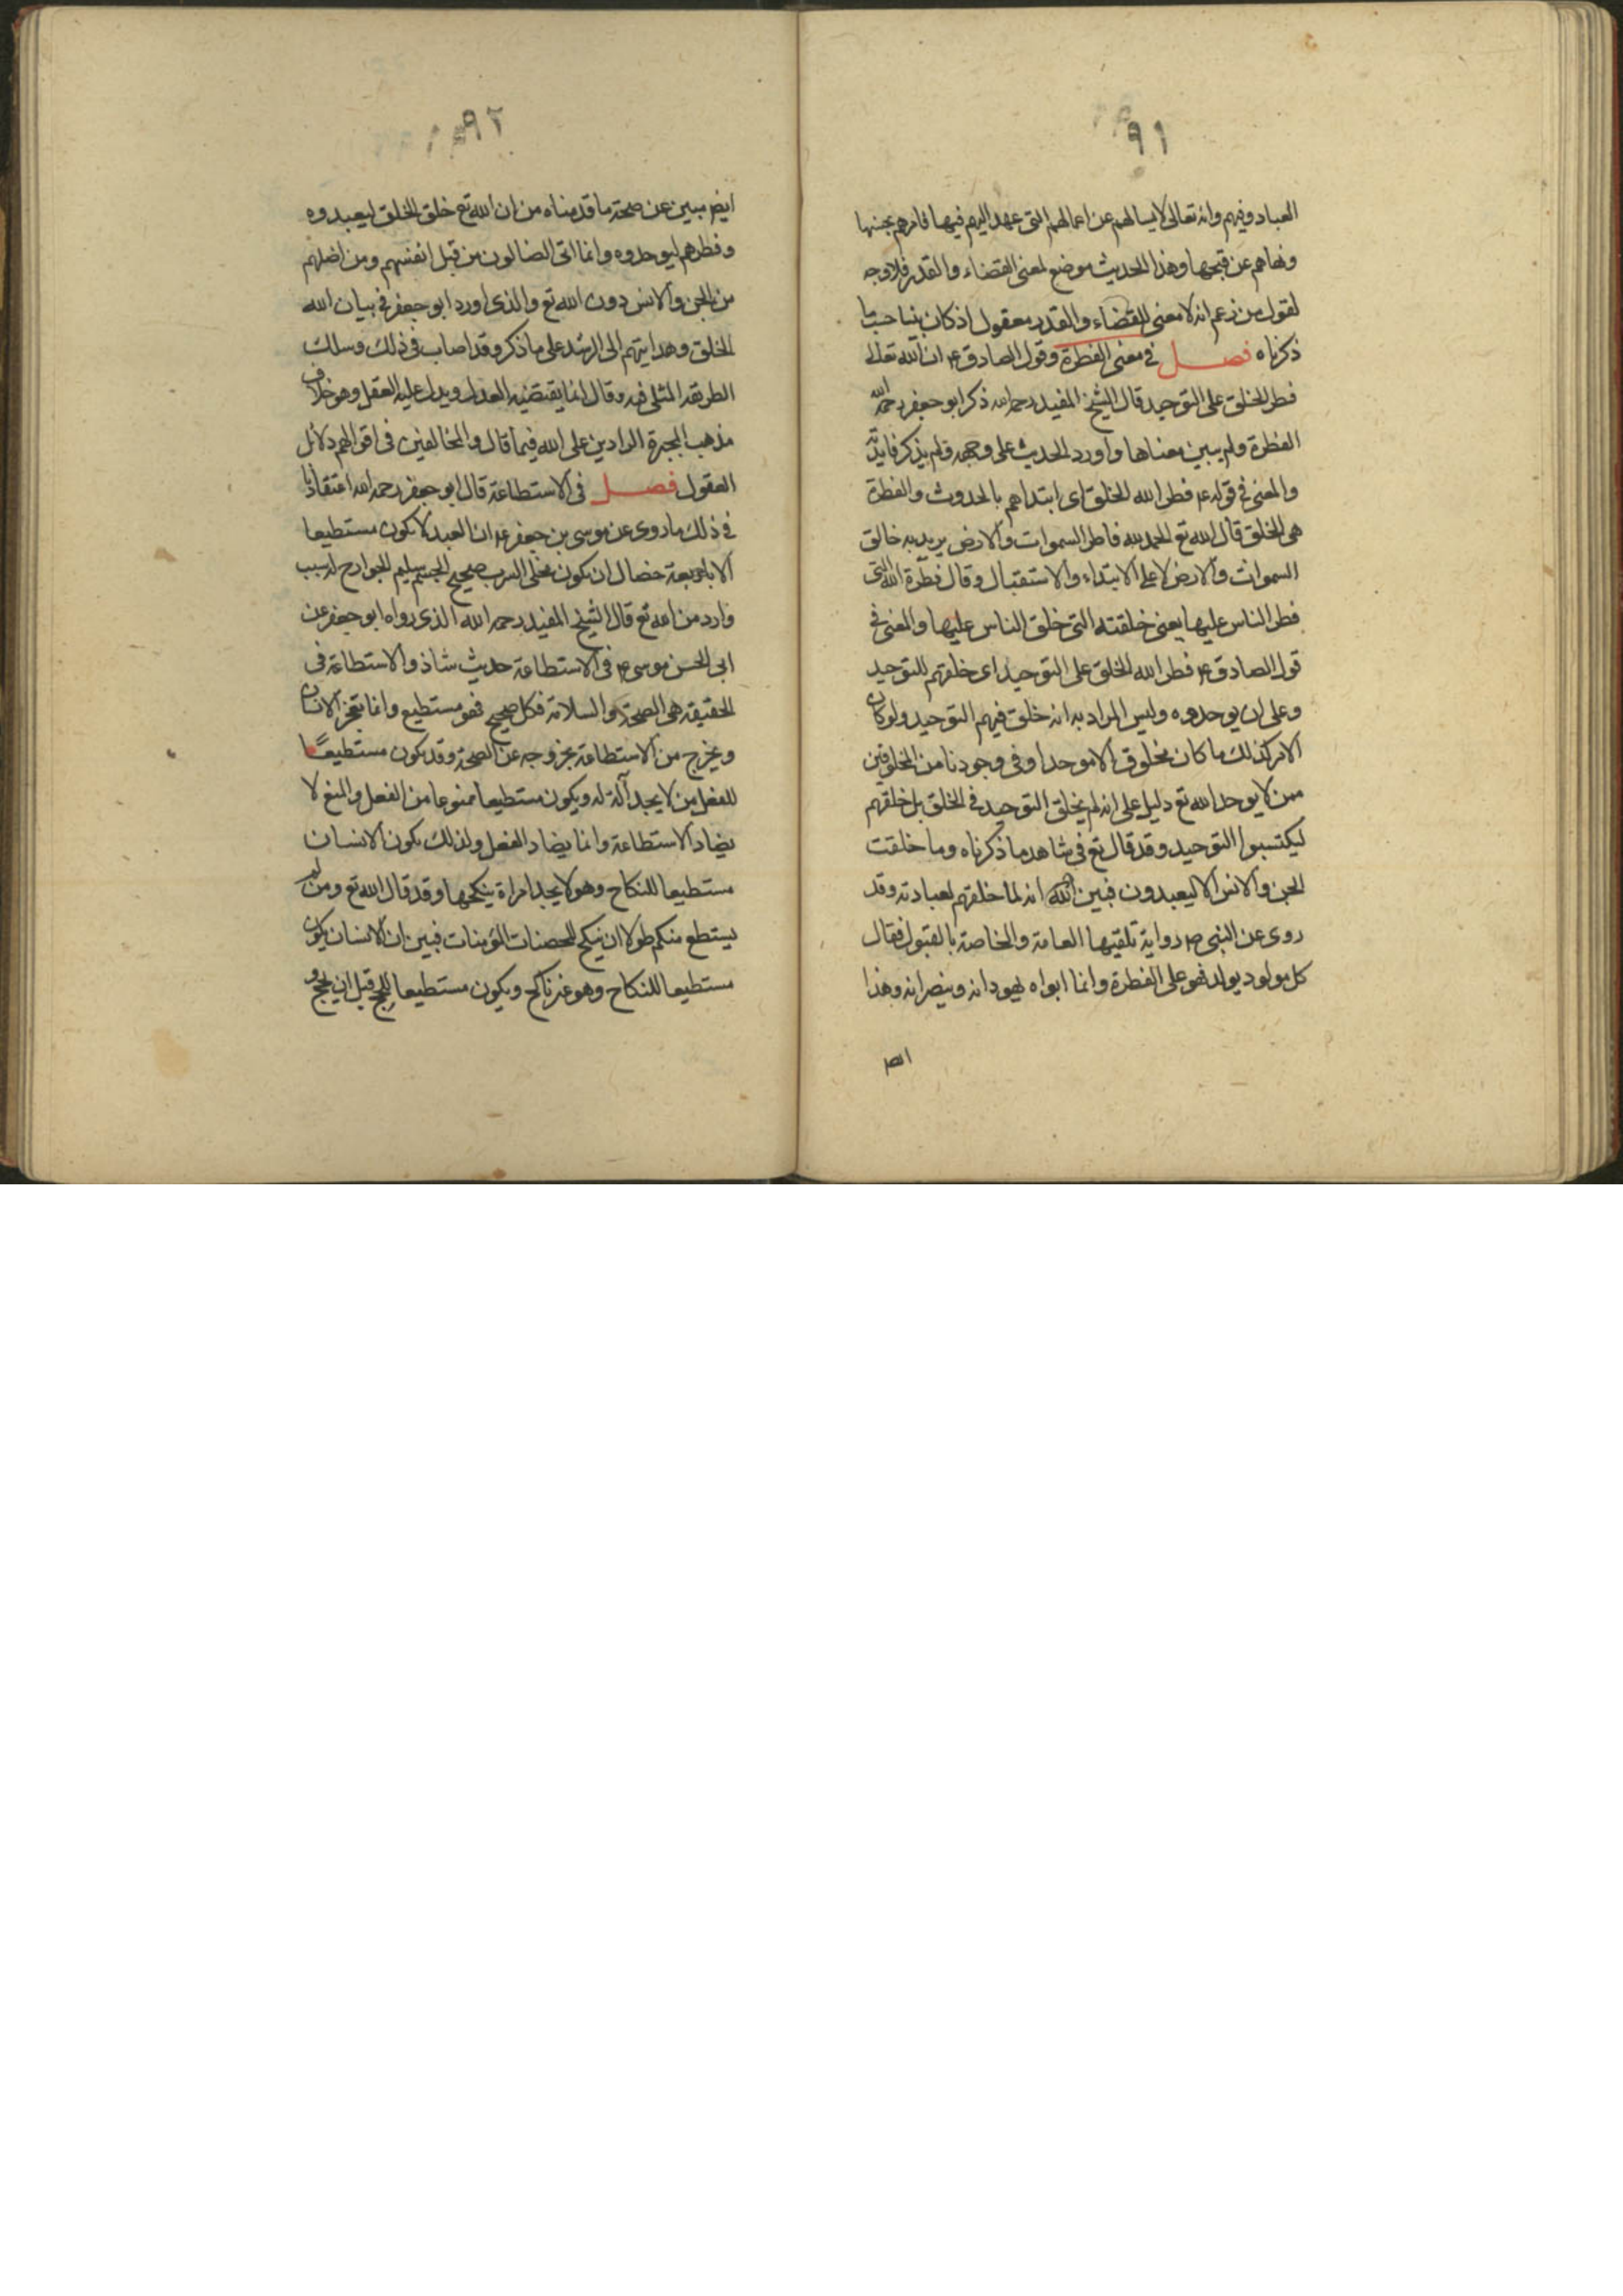 ٩١
العباد وفيهم وانه تعالى لا يسالهم عن اعمالهم التى عهد اليهم فيها فامرهم بحسنها
ونهاهم عن قبحها وهذا الحديث موضح لمعنى القضاء والقدر فلا وجه
لقول من زعم انه لا معنى للقضاء والقدر معقول اذ كان بينا حسب ما
ذكرناه فصل في معنى الفطرة وقول الصادق ع ان الله تعالى
فطر الخلق على التوحيد قال الشيخ المفيد رحمه الله ذكر ابو جعفر رحمه الله
الفطرة ولم يبين معناها واورد الحديث على وجهه ولم يذكر فايدته
والمعنى في قوله ع فطر الله الخلق اى ابتداهم بالحدوث والفطرة
هى الخلق قال الله تع الحمد لله فاطر السموات والارض يريد به خالق
السموات والارض لا على الابتداء والاستقبال وقال فطرة الله التى
فطر الناس عليها يعنى خلقته التى خلق الناس عليها والمعنى في
قول الصادق ع فطر الله الخلق على التوحيد اى خلقهم للتوحيد
وعلى ان يوحدوه وليس المراد به انه خلق فيهم التوحيد ولو كان
الامر كذلك ما كان مخلوق الا موحدا وفى وجودنا من المخلوقين
ممن لا يوحد الله تع دليل على انه لم يخلق التوحيد في الخلق بل خلقهم
ليكتسبوا التوحيد وقد قال تع في شاهد ما ذكرناه وما خلقت
الجن والانس الا ليعبدون فبين الله انه لما خلقهم لعبادته وقد
روى عن النبى ص رواية تلقيها العامة والخاصة بالقبول فقال
كل مولود يولد فهو على الفطرة وانما ابواه يهودانه وينصرانه وهذا
ايضا
٩٢
ايضا مبين عن صحة ما قدمناه من ان الله تع خلق الخلق ليعبدوه
وفطرهم ليوحدوه وانما اتى الضالون من قبل انفسهم ومن اضلهم
من الجن والانس دون الله تع والذى اورد ابو جعفر في بيان الله
الخلق وهدايتهم الى الرشد على ما ذكر وقد اصاب في ذلك وسلك
الطريقه المثلى فيه وقال انما يقتضيه العدل ويدل عليه العقل وهو خلاف
مذهب المجبرة الرادين على الله فيما قال والمخالفين في اقوالهم دلائل
العقول فصل في الاستطاعة قال ابو جعفر رحمه الله اعتقادنا
في ذلك ما روى عن موسى بن جعفر ع ان العبد لا يكون مستطيعا
الا باربعة خصال ان يكون مخلى السرب صحيح الجسم سليم الجوارح له سبب
وارد من الله تع قال الشيخ المفيد رحمه الله الذى رواه ابو جعفر عن
ابى الحسن موسى ع في الاستطاعة حديث شاذ والاستطاعة في
الحقيقه هى الصحة والسلامة فكل صحيح فهو مستطيع وانما يعجز الانسان
ويخرج من الاستطاعة بخروجه عن الصحة وقد يكون مستطيعا
للفعل من لا يجد آلة له ويكون مستطيعا ممنوعا من الفعل والمنع لا
يضاد الاستطاعة وانما يضاد الفعل ولذلك يكون الانسان
مستطيعا للنكاح وهو لا يجد امراة ينكحها وقد قال الله تع ومن لم
يستطع منكم طولا ان ينكح المحصنات المؤمنات فبين ان الانسان يكون
مستطيعا للنكاح وهو غير ناكح ويكون مستطيعا للحج قبل ان يحج و